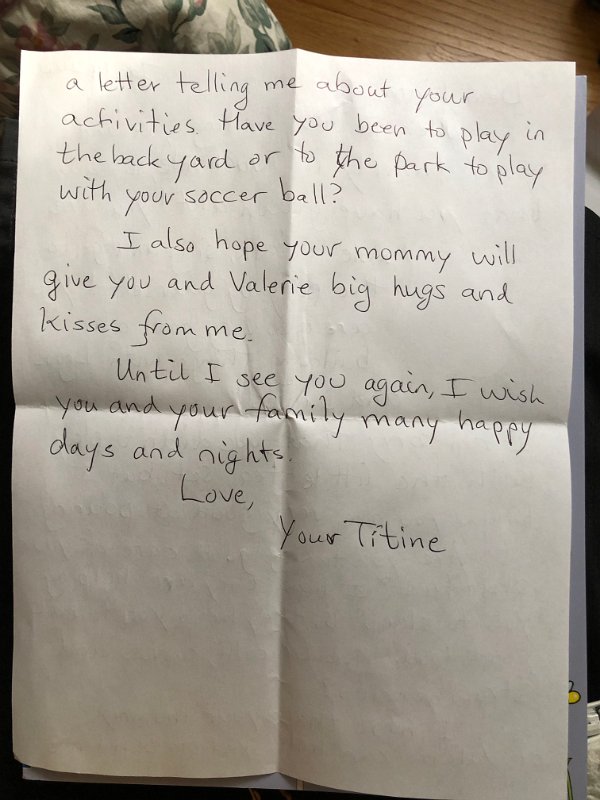 a letter telling me about your
activities. Have you been to play in
the back yard or to the park to play
with your soccer ball?
I also hope your mommy will
give you and Valerie big hugs and
kisses from me.
Until I see you again, I wish
you and your family many happy
days and nights.
Love,
Your Titine